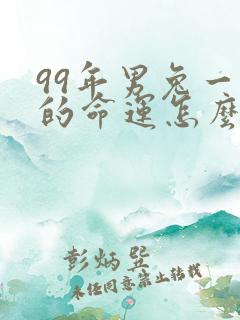 99年男兔一
的命运怎麽
彭炳巽
未经同意禁止转载